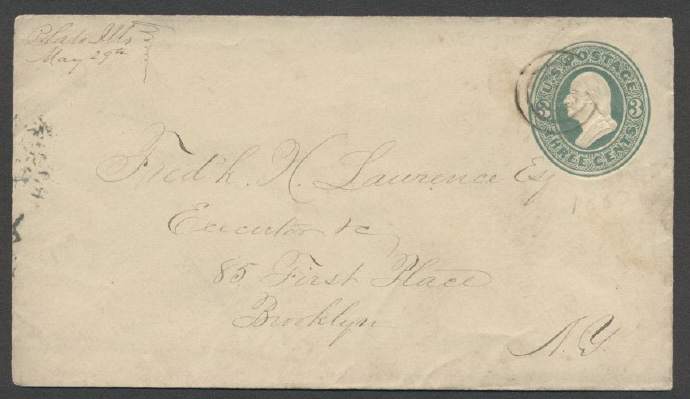 Plato Ills
May 29th
U.S. POSTAGE
3 3
THREE CENTS
Fredk. H. Lawrence Esq
Executor &c,
85 First Place
Brooklyn
N.Y.